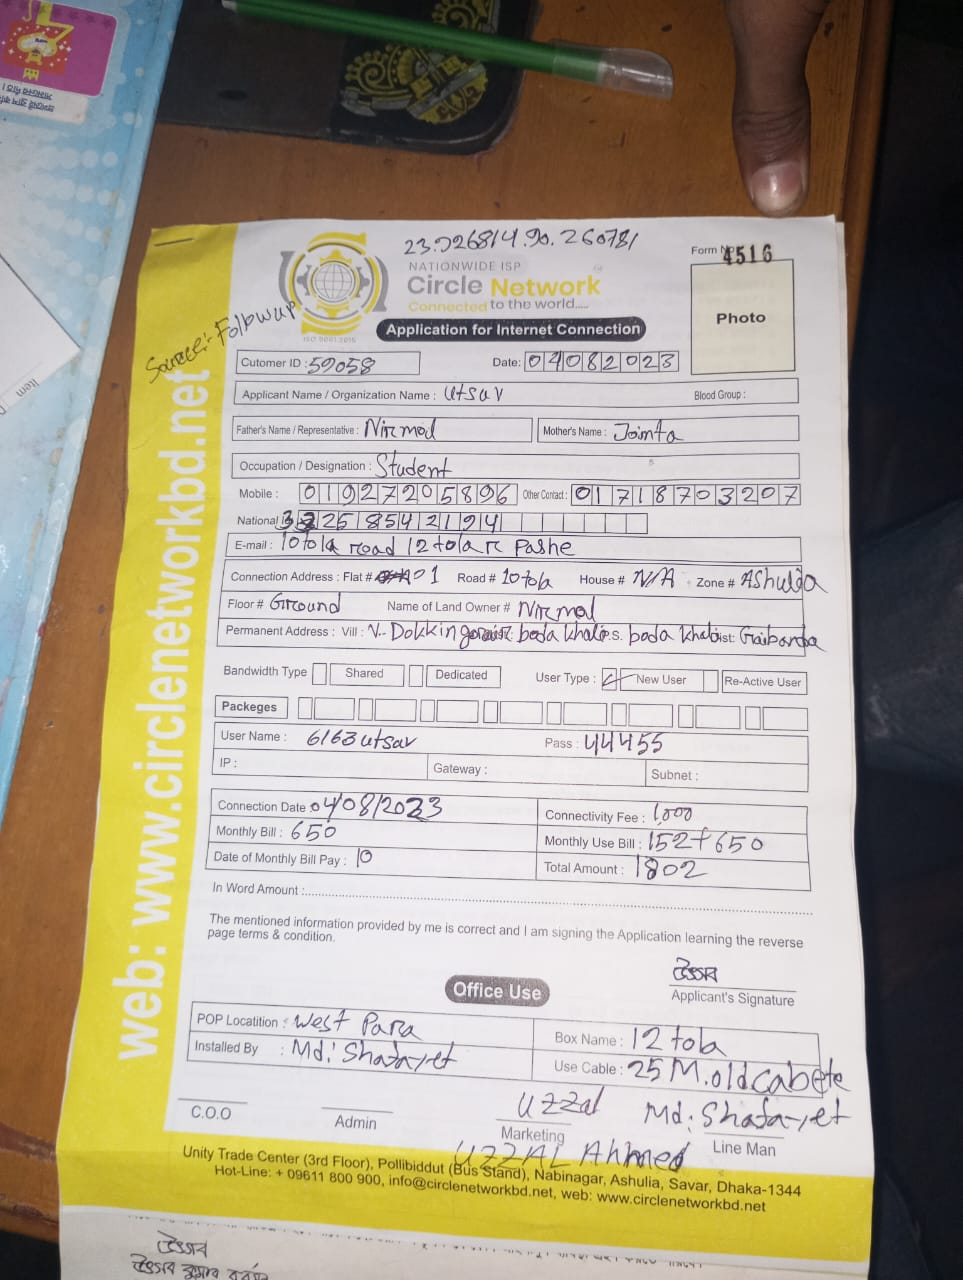 23.226814.90.260781
Form No 4516
NATIONWIDE ISP
Circle Network
Connected to the world.....
ISO 9001:2015
Source:- Follow up
Application for Internet Connection
Photo
Cutomer ID : 59058 Date: 04082023
Applicant Name / Organization Name : Utsav Blood Group :
Father's Name / Representative : Nirmol Mother's Name : Jointa
Occupation / Designation : Student
Mobile : 01927205896 Other Contact : 01718703207
National 32258542194
E-mail : 10 tola road 12 tola r Pashe
Connection Address : Flat # 01 Road # 10 tola House # N/A Zone # Ashulia
Floor # Ground Name of Land Owner # Nirmol
Permanent Address : Vill : boda khali P.S. boda khali Dist: Gaibanda
Bandwidth Type Shared Dedicated User Type : New User Re-Active User
Packeges
User Name : 6163utsav Pass : 44455
IP : Gateway : Subnet :
Connection Date : 04/08/2023 Connectivity Fee : 1,000
Monthly Bill : 650 Monthly Use Bill : 152+650
Date of Monthly Bill Pay : 10 Total Amount : 1802
In Word Amount :
The mentioned information provided by me is correct and I am signing the Application learning the reverse
page terms & condition.
উৎসব
Applicant's Signature
Office Use
POP Locatition : West Para Box Name : 12 tola
Installed By : Md: Shafayet Use Cable : 25 M. old cable
Uzzal Md: Shafayet
C.O.O Admin Marketing Line Man
UZZAL Ahmed
Unity Trade Center (3rd Floor), Pollibiddut (Bus Stand), Nabinagar, Ashulia, Savar, Dhaka-1344
Hot-Line: + 09611 800 900, info@circlenetworkbd.net, web: www.circlenetworkbd.net
web: www.circlenetworkbd.net
উৎসব
উৎসব কুমার
Item